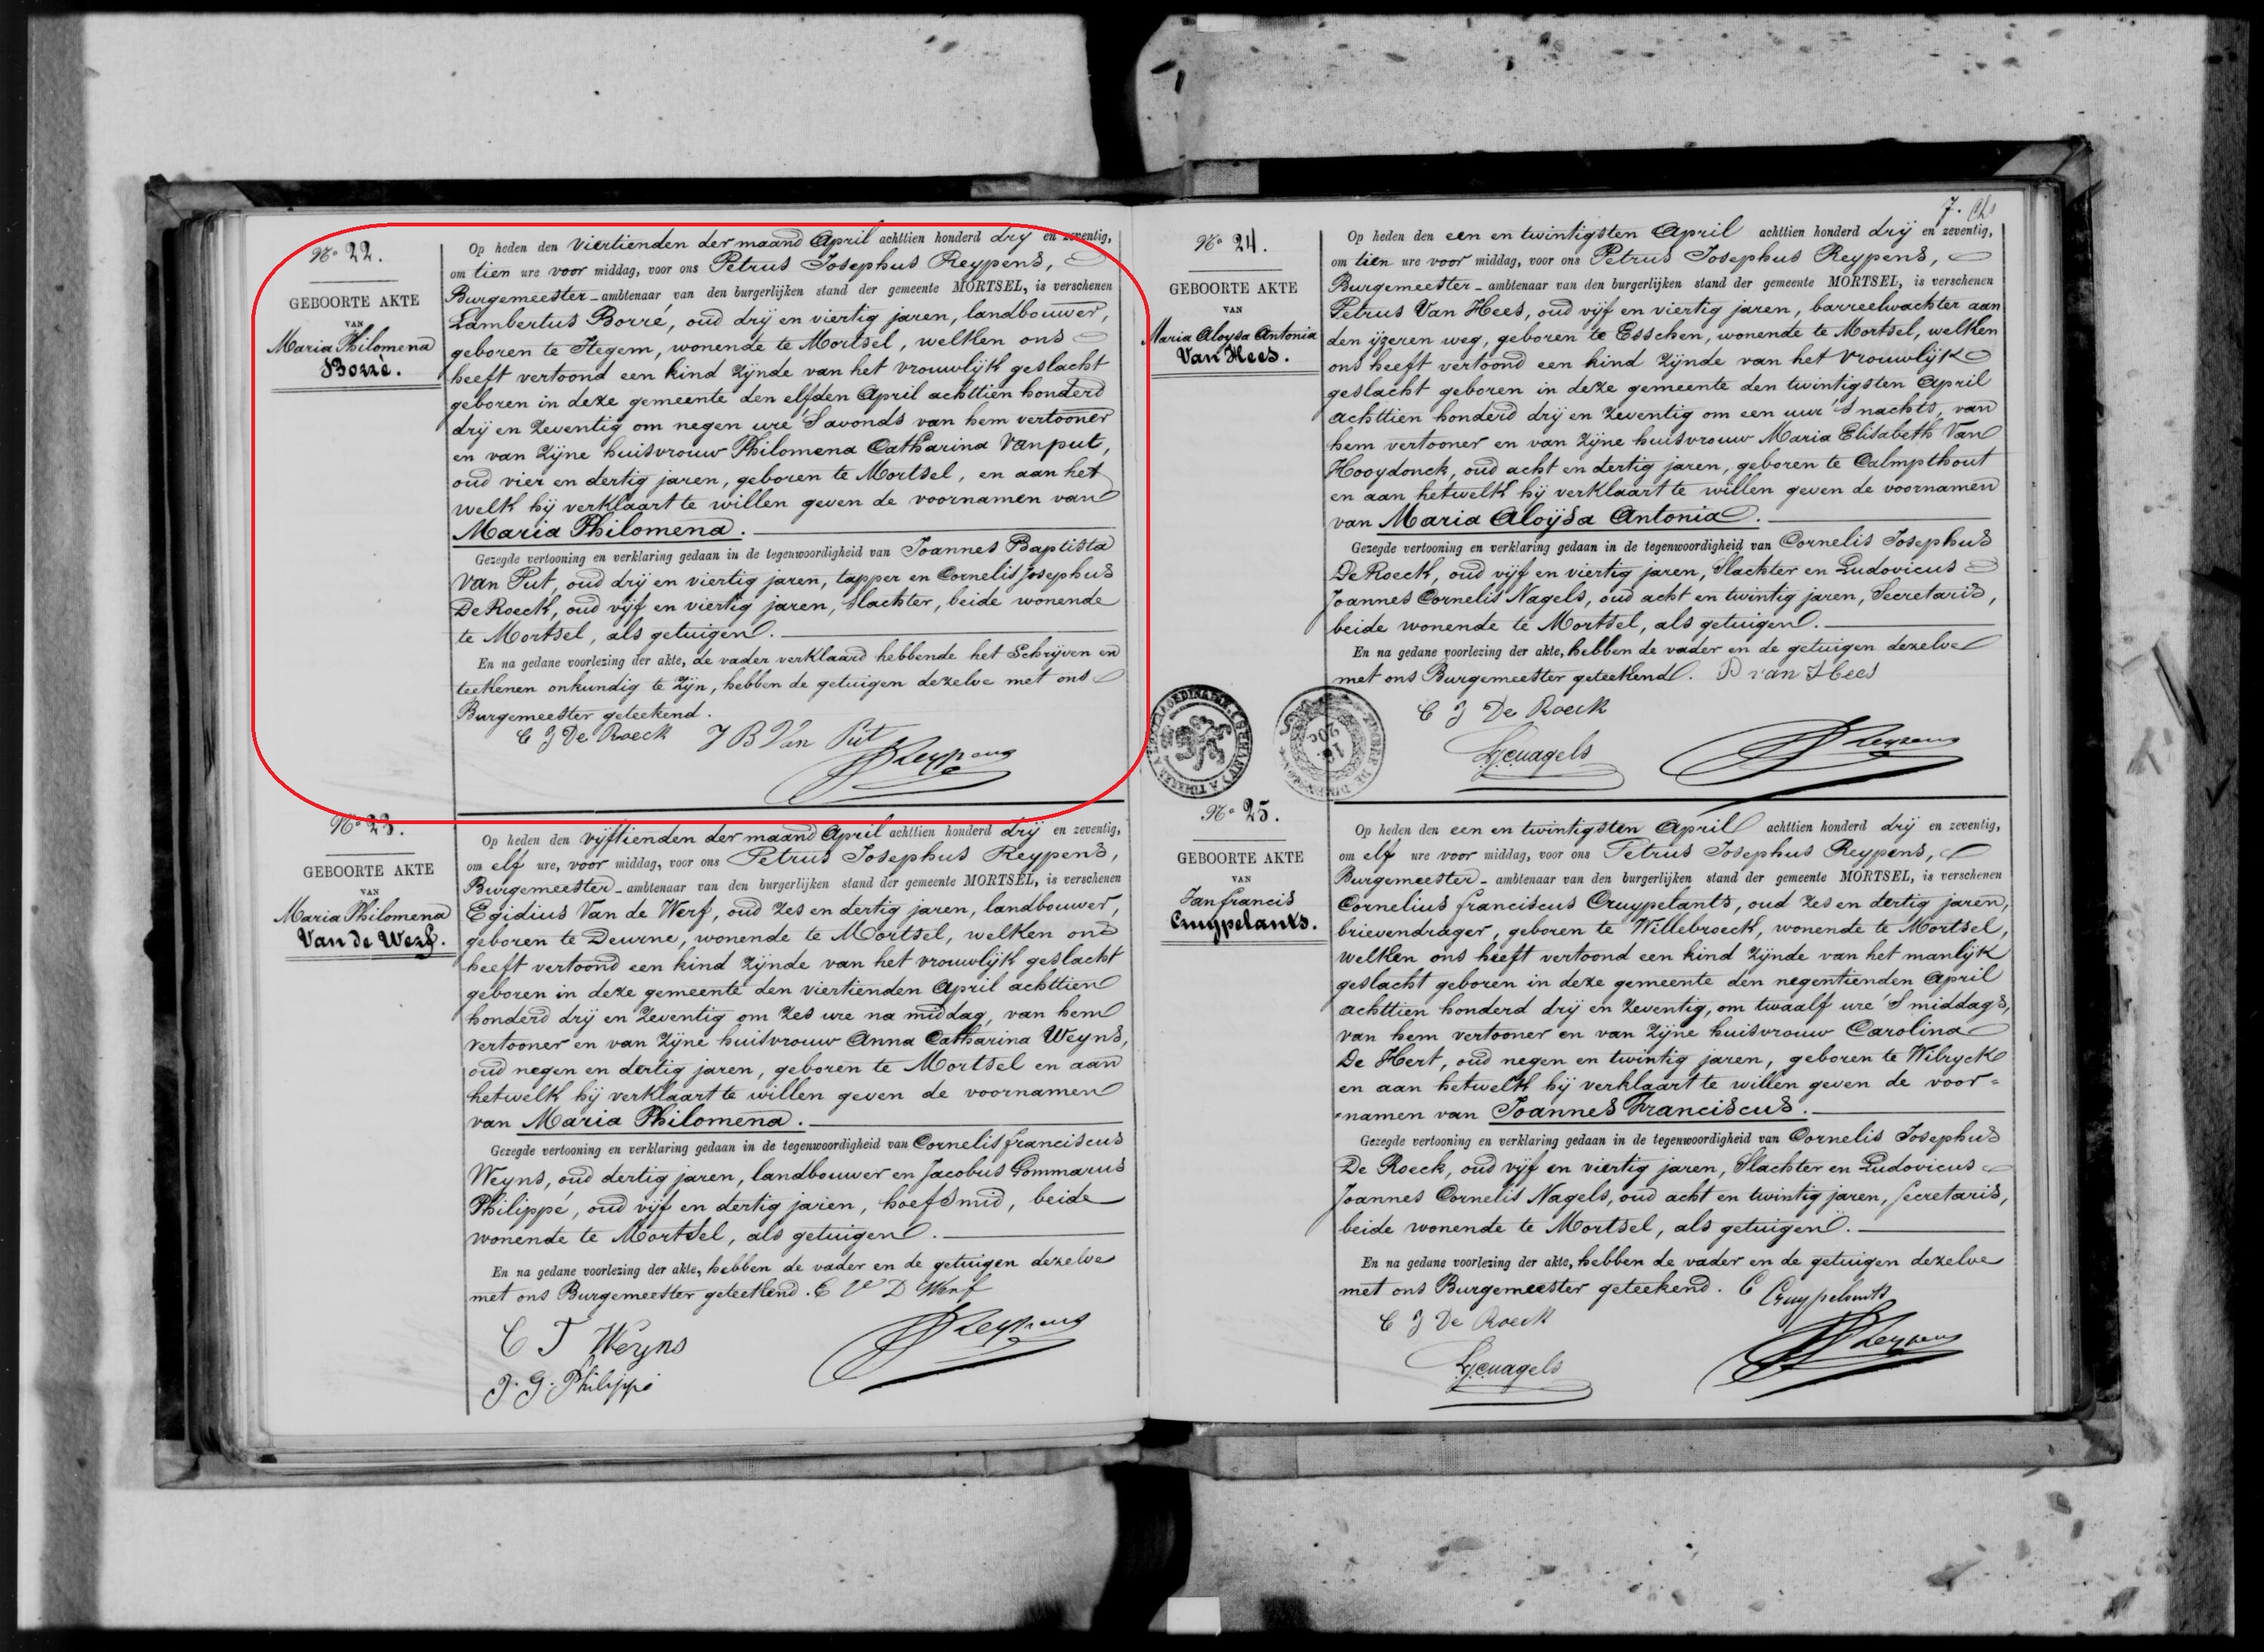 Nº 22.
GEBOORTE AKTE
VAN
Maria Philomena
Borré.
Op heden den viertienden der maand April achttien honderd drij en zeventig,
om tien ure voor middag, voor ons Petrus Josephus Reypens,
Burgemeester - ambtenaar van den burgerlijken stand der gemeente MORTSEL, is verschenen
Lambertus Borré, oud drij en viertig jaren, landbouwer,
geboren te Itegem, wonende te Mortsel, welken ons
heeft vertoond een kind zijnde van het vrouwlijk geslacht
geboren in deze gemeente den elfden April achttien honderd
drij en zeventig om negen ure 'S avonds van hem vertooner
en van zijne huisvrouw Philomena Catharina Vanput,
oud vier en dertig jaren, geboren te Mortsel, en aan het
welk hij verklaart te willen geven de voornamen van
Maria Philomena.
Gezegde vertooning en verklaring gedaan in de tegenwoordigheid van Joannes Baptista
Van Put, oud drij en viertig jaren, tapper en Cornelis Josephus
De Roeck, oud vijf en viertig jaren, Slachter, beide wonende
te Mortsel, als getuigen.
En na gedane voorlezing der akte, de vader verklaard hebbende het Schrijven en
teekenen onkundig te zijn, hebben de getuigen dezelve met ons
Burgemeester geteekend.
C J De Roeck J B Van Put
PReypens
Nº 23.
GEBOORTE AKTE
VAN
Maria Philomena
Van de Werf.
Op heden den vijftienden der maand April achttien honderd drij en zeventig,
om elf ure, voor middag, voor ons Petrus Josephus Reypens,
Burgemeester - ambtenaar van den burgerlijken stand der gemeente MORTSEL, is verschenen
Egidius Van de Werf, oud zes en dertig jaren, landbouwer,
geboren te Deurne, wonende te Mortsel, welken ons
heeft vertoond een kind zijnde van het vrouwlijk geslacht
geboren in deze gemeente den viertienden April achttien
honderd drij en zeventig om zes ure na middag, van hem
vertooner en van zijne huisvrouw Anna Catharina Weyns,
oud negen en dertig jaren, geboren te Mortsel en aan
hetwelk hij verklaart te willen geven de voornamen
van Maria Philomena.
Gezegde vertooning en verklaring gedaan in de tegenwoordigheid van Cornelis franciscus
Weyns, oud dertig jaren, landbouwer en Jacobus Gommarus
Philippé, oud vijf en dertig jaren, hoefsmid, beide
wonende te Mortsel, als getuigen.
En na gedane voorlezing der akte, hebben de vader en de getuigen dezelve
met ons Burgemeester geteekend. E V D Werf
C F Weyns
J. G. Philippé
PReypens
7.
Nº 24.
GEBOORTE AKTE
VAN
Maria Aloysa Antonia
Van Hees.
Op heden den een en twintigsten April achttien honderd drij en zeventig,
om tien ure voor middag, voor ons Petrus Josephus Reypens,
Burgemeester - ambtenaar van den burgerlijken stand der gemeente MORTSEL, is verschenen
Petrus Van Hees, oud vijf en viertig jaren, barreelwachter aan
den ijzeren weg, geboren te Esschen, wonende te Mortsel, welken
ons heeft vertoond een kind zijnde van het vrouwlijk
geslacht geboren in deze gemeente den twintigsten April
achttien honderd drij en zeventig om een uur 'S nachts, van
hem vertooner en van zijne huisvrouw Maria Elisabeth Van
Hooydonck, oud acht en dertig jaren, geboren te Calmpthout
en aan hetwelk hij verklaart te willen geven de voornamen
van Maria Aloÿsa Antonia.
Gezegde vertooning en verklaring gedaan in de tegenwoordigheid van Cornelis Josephus
De Roeck, oud vijf en viertig jaren, Slachter en Ludovicus
Joannes Cornelis Nagels, oud acht en twintig jaren, Secretaris,
beide wonende te Mortsel, als getuigen.
En na gedane voorlezing der akte, hebben de vader en de getuigen dezelve
met ons Burgemeester geteekend. P van Hees
C J De Roeck
LJCNagels
PReypens
Nº 25.
GEBOORTE AKTE
VAN
Jan francis
Cruypelants.
Op heden den een en twintigsten April achttien honderd drij en zeventig,
om elf ure voor middag, voor ons Petrus Josephus Reypens,
Burgemeester - ambtenaar van den burgerlijken stand der gemeente MORTSEL, is verschenen
Cornelius franciscus Cruypelants, oud zes en dertig jaren,
brievendrager, geboren te Willebroeck, wonende te Mortsel,
welken ons heeft vertoond een kind zijnde van het manlijk
geslacht geboren in deze gemeente den negentienden April
achttien honderd drij en zeventig, om twaalf ure 'S middags,
van hem vertooner en van zijne huisvrouw Carolina
De Hert, oud negen en twintig jaren, geboren te Wilryck
en aan hetwelk hij verklaart te willen geven de voor=
=namen van Joannes Franciscus.
Gezegde vertooning en verklaring gedaan in de tegenwoordigheid van Cornelis Josephus
De Roeck, oud vijf en viertig jaren, Slachter en Ludovicus
Joannes Cornelis Nagels, oud acht en twintig jaren, Secretaris,
beide wonende te Mortsel, als getuigen.
En na gedane voorlezing der akte, hebben de vader en de getuigen dezelve
met ons Burgemeester geteekend. C Cruypelants
C J De Roeck
LJCNagels
PReypens